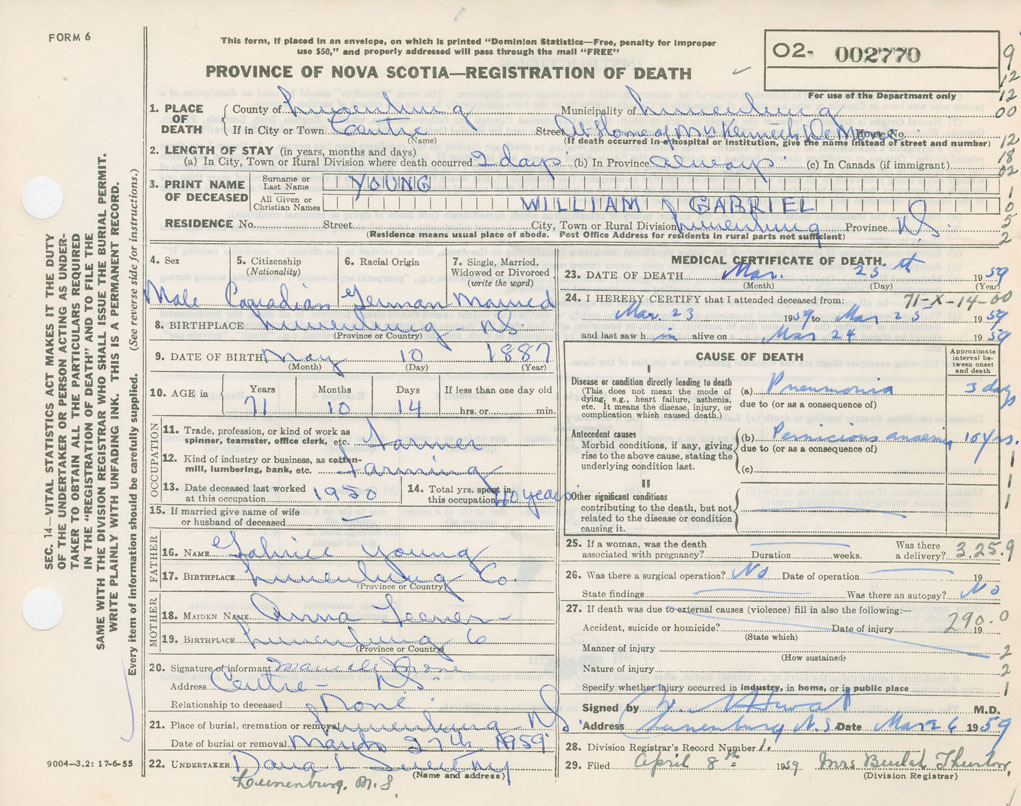 FORM 6
This form, if placed in an envelope, on which is printed "Dominion Statistics—Free, penalty for improper
use $50," and properly addressed will pass through the mail "FREE"
PROVINCE OF NOVA SCOTIA—REGISTRATION OF DEATH
02- 002770
For use of the Department only
9
12
12
00
12
18
02
1
0
5
2
SEC. 14—VITAL STATISTICS ACT MAKES IT THE DUTY
OF THE UNDERTAKER OR PERSON ACTING AS UNDER-
TAKER TO OBTAIN ALL THE PARTICULARS REQUIRED
IN THE "REGISTRATION OF DEATH" AND TO FILE THE
SAME WITH THE DIVISION REGISTRAR WHO SHALL ISSUE THE BURIAL PERMIT.
WRITE PLAINLY WITH UNFADING INK. THIS IS A PERMANENT RECORD.
Every item of information should be carefully supplied. (See reverse side for instructions.)
1. PLACE OF DEATH
County of Lunenburg Municipality of Lunenburg
If in City or Town Centre Street At Home of Mrs Kenneth DeMone House No.
(Name) (If death occurred in a hospital or institution, give the name instead of street and number)
2. LENGTH OF STAY (in years, months and days)
(a) In City, Town or Rural Division where death occurred 2 days (b) In Province always (c) In Canada (if immigrant)
3. PRINT NAME OF DECEASED
Surname or Last Name YOUNG
All Given or Christian Names WILLIAM GABRIEL
RESIDENCE No. Street City, Town or Rural Division Lunenburg Province N.S.
(Residence means usual place of abode. Post Office Address for residents in rural parts not sufficient)
4. Sex
5. Citizenship (Nationality)
6. Racial Origin
7. Single, Married, Widowed or Divorced (write the word)
Male Canadian German Married
8. BIRTHPLACE Lunenburg - N.S.
(Province or Country)
9. DATE OF BIRTH May 10 1887
(Month) (Day) (Year)
10. AGE in
Years Months Days If less than one day old
71 10 14 hrs. or min.
OCCUPATION
11. Trade, profession, or kind of work as
spinner, teamster, office clerk, etc. Farmer
12. Kind of industry or business, as cotton-
mill, lumbering, bank, etc. Farming
13. Date deceased last worked
at this occupation 1950
14. Total yrs. spent in
this occupation 40 years
15. If married give name of wife
or husband of deceased
FATHER
16. NAME Gabriel Young
17. BIRTHPLACE Lunenburg Co.
(Province or Country)
MOTHER
18. MAIDEN NAME Anna
19. BIRTHPLACE Lunenburg Co
(Province or Country)
20. Signature of informant
Address Centre - N.S.
Relationship to deceased None
21. Place of burial, cremation or removal Lunenburg N.S.
Date of burial or removal March 27th 1959
22. UNDERTAKER
(Name and address)
Lunenburg N.S.
9004—3.2: 17-6-55
MEDICAL CERTIFICATE OF DEATH
23. DATE OF DEATH Mar. 25th 1959
(Month) (Day) (Year)
24. I HEREBY CERTIFY that I attended deceased from: 71-X-14-00
Mar. 23 1959 to Mar 25 1959
and last saw him alive on Mar 24 1959
CAUSE OF DEATH
Approximate interval between onset and death
I
Disease or condition directly leading to death
(This does not mean the mode of
dying, e.g., heart failure, asthenia,
etc. It means the disease, injury, or
complication which caused death.)
(a) Pneumonia 3 days
due to (or as a consequence of)
Antecedent causes
Morbid conditions, if any, giving
rise to the above cause, stating the
underlying condition last.
(b) Pernicious anaemia 10 yrs.
due to (or as a consequence of)
(c)
1
1
1
II
Other significant conditions
contributing to the death, but not
related to the disease or condition
causing it.
25. If a woman, was the death
associated with pregnancy? Duration weeks. Was there a delivery? 3.25.9
26. Was there a surgical operation? No Date of operation 19
State findings Was there an autopsy? No
27. If death was due to external causes (violence) fill in also the following:—
290.0
Accident, suicide or homicide? Date of injury 19
(State which)
Manner of injury 2
(How sustained)
Nature of injury 2
Specify whether injury occurred in industry, in home, or in public place 1
Signed by M.D.
Address Lunenburg N.S. Date Mar 26 1959
28. Division Registrar's Record Number 1.
29. Filed April 8th 1959 Mrs Beulah
(Division Registrar)